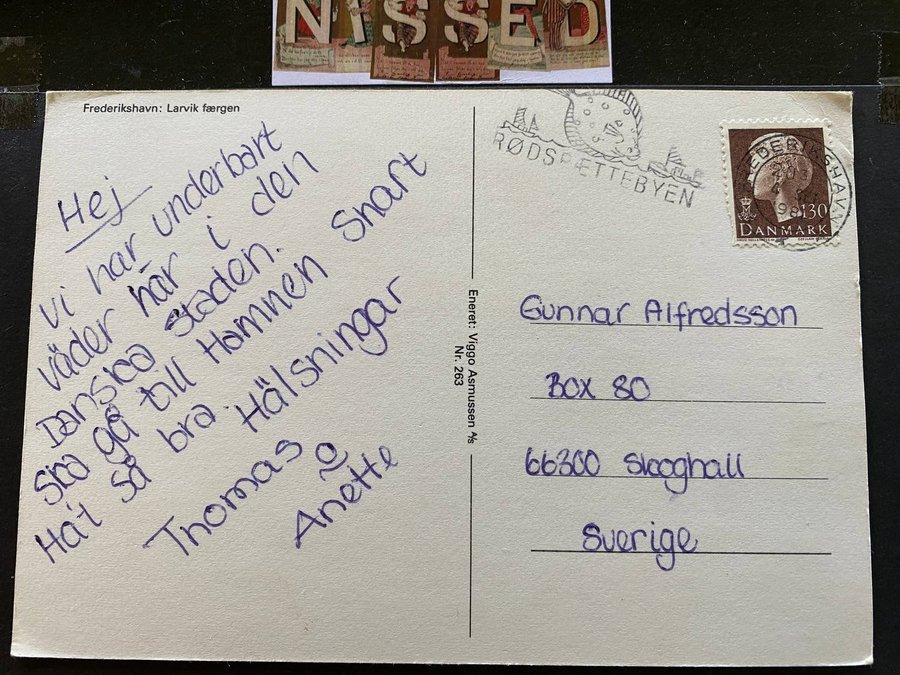 NISSED
Frederikshavn: Larvik færgen
Hej
Vi har underbart
väder här i den
Danska staden. Snart
ska gå till Hamnen
Ha't så bra. Hälsningar
Thomas o
Anette
Eneret: Viggo Asmussen A/s
Nr. 263
RØDSPÆTTEBYEN
FREDERIKSHAVN
130
DANMARK
Gunnar Alfredsson
Box 80
66300 Skoghall
Sverige